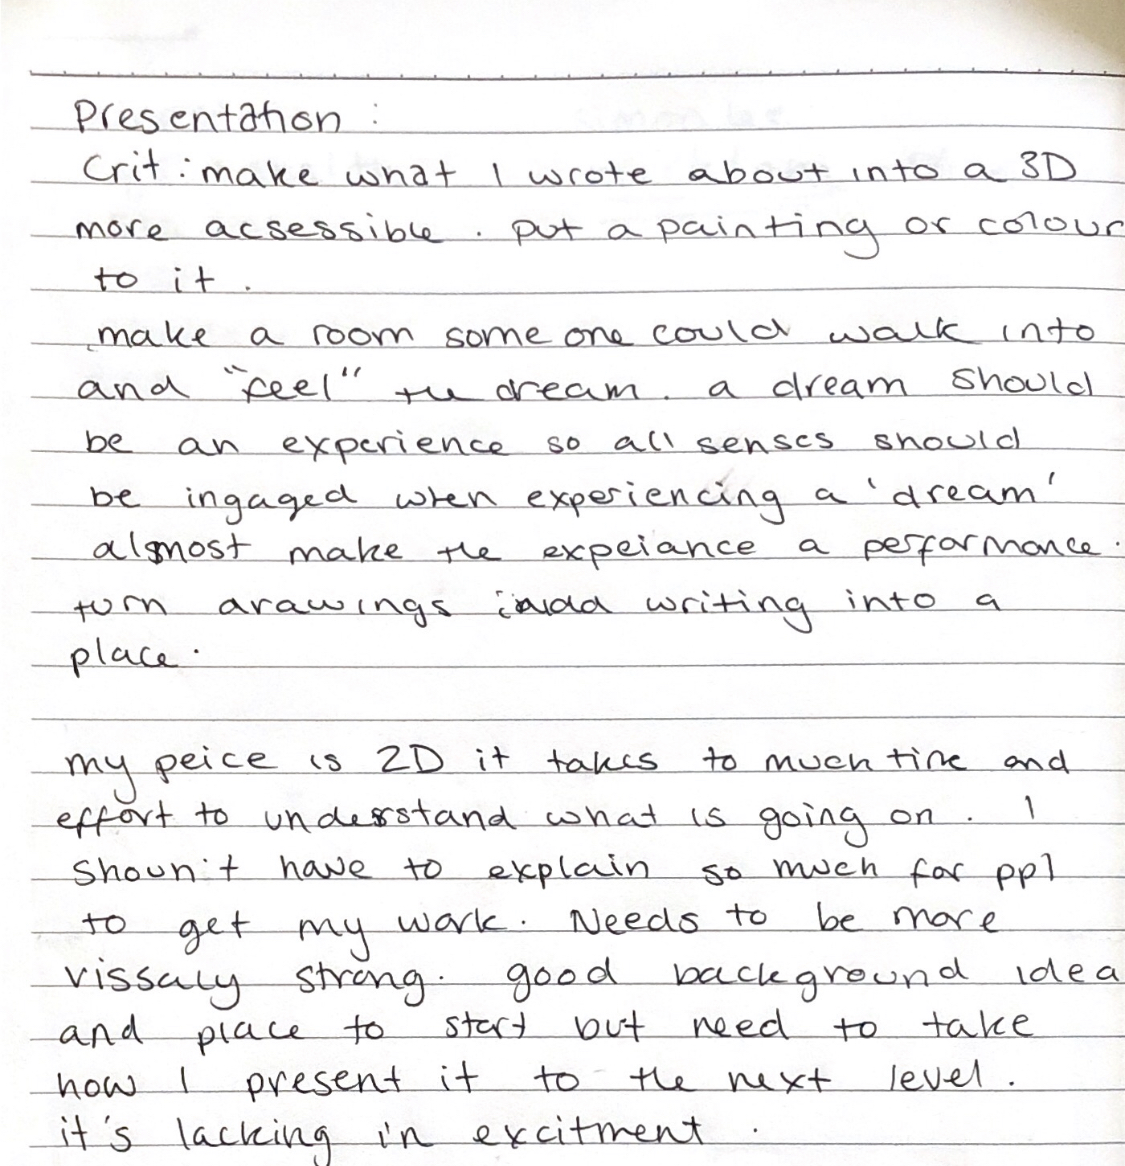 Presentation :
Crit : make what I wrote about into a 3D
more acsessible . put a painting or colour
to it .
make a room some one could walk into
and "feel" the dream . a dream should
be an experience so all senses should
be ingaged when experiencing a 'dream'
almost make the expeiance a performance .
turn drawings writing into a
place .
my peice is 2D it takes to much time and
effort to understand what is going on . I
shoun't have to explain so much for ppl
to get my work . Needs to be more
vissaly strong . good background idea
and place to start but need to take
how I present it to the next level .
it's lacking in excitment .